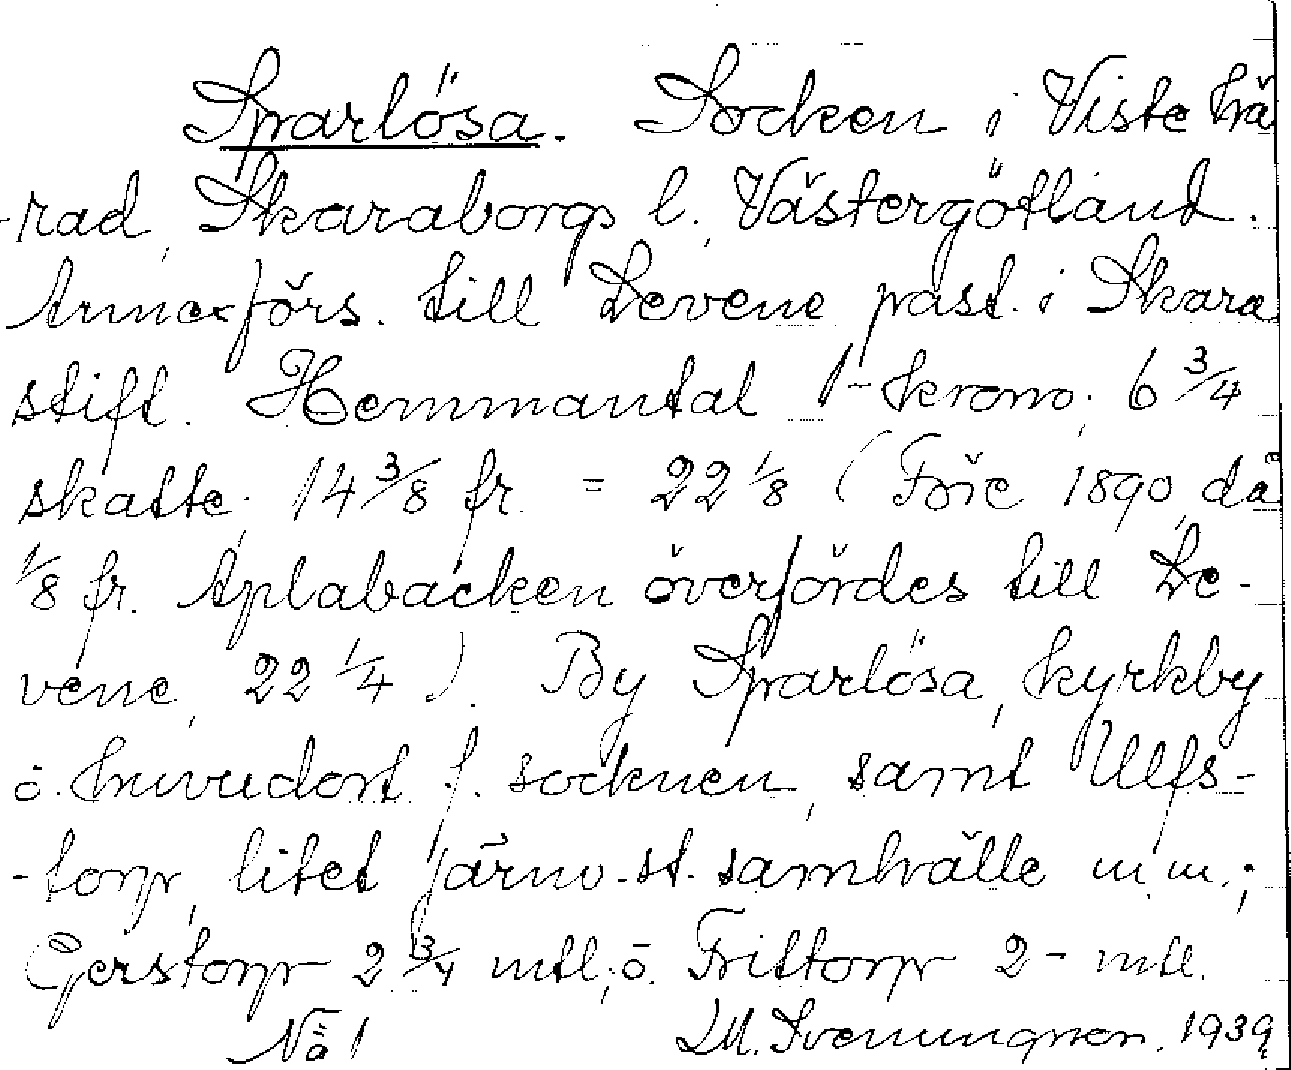 Sparlösa. Socken i Viste hä
-rad, Skaraborgs l., Västergötland.
Annexförs. till Levene past. i Skara
stift. Hemmantal 1- krono; 6 3/4
skatte; 14 3/8 fr. = 22 1/8 (Före 1890, då
1/8 fr. Aplabacken överfördes till Le-
vene, 22 1/4). By Sparlösa, kyrkby
o. huvudort f. socknen, samt Ulfs-
-torp, litet järnv.st.samhälle m.m.;
Gerstorp 2 3/4 mtl; o. Frittorp 2- mtl.
Nä 1 D.M. Svenungsson. 1939.